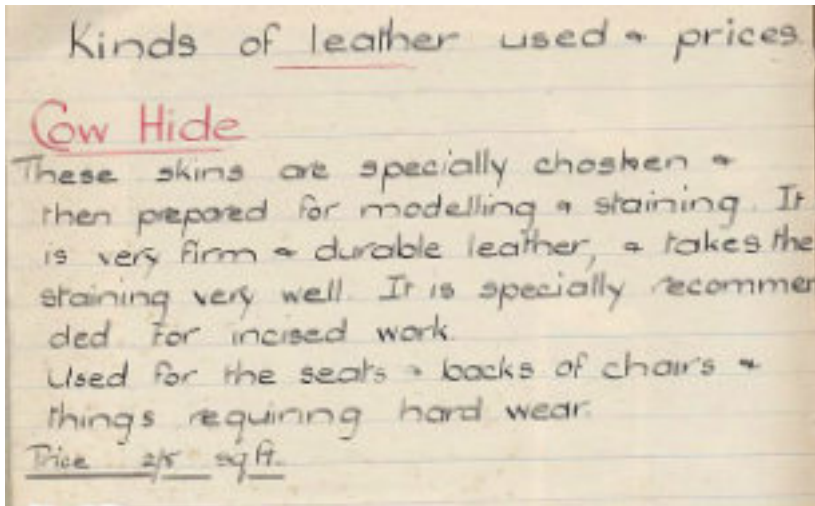 Kinds of leather used & prices.
Cow Hide
These skins are specially chosken &
then prepared for modelling & staining. It
is very firm & durable leather, & takes the
staining very well. It is specially recommen
ded for incised work.
Used for the seats & backs of chairs &
things requiring hard wear.
Price 2/5 sq ft.